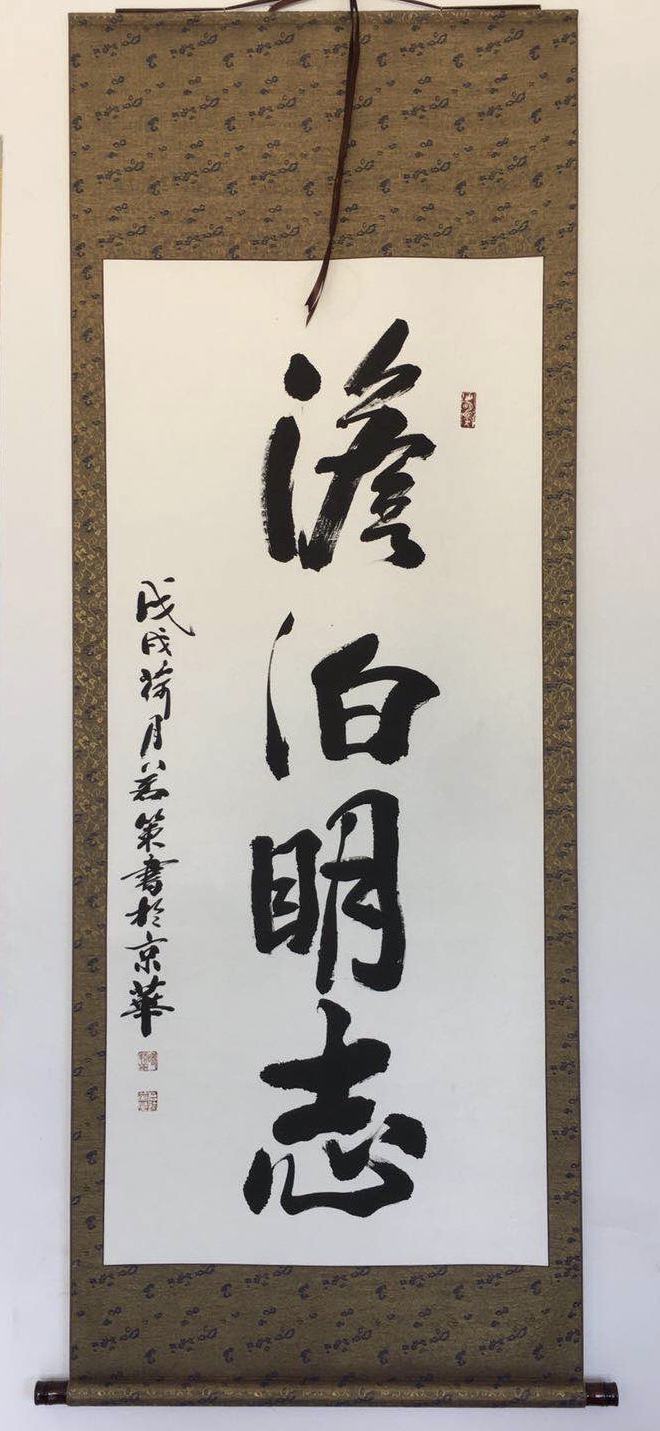 澹泊明志
戊戌荷月八君策書於京華